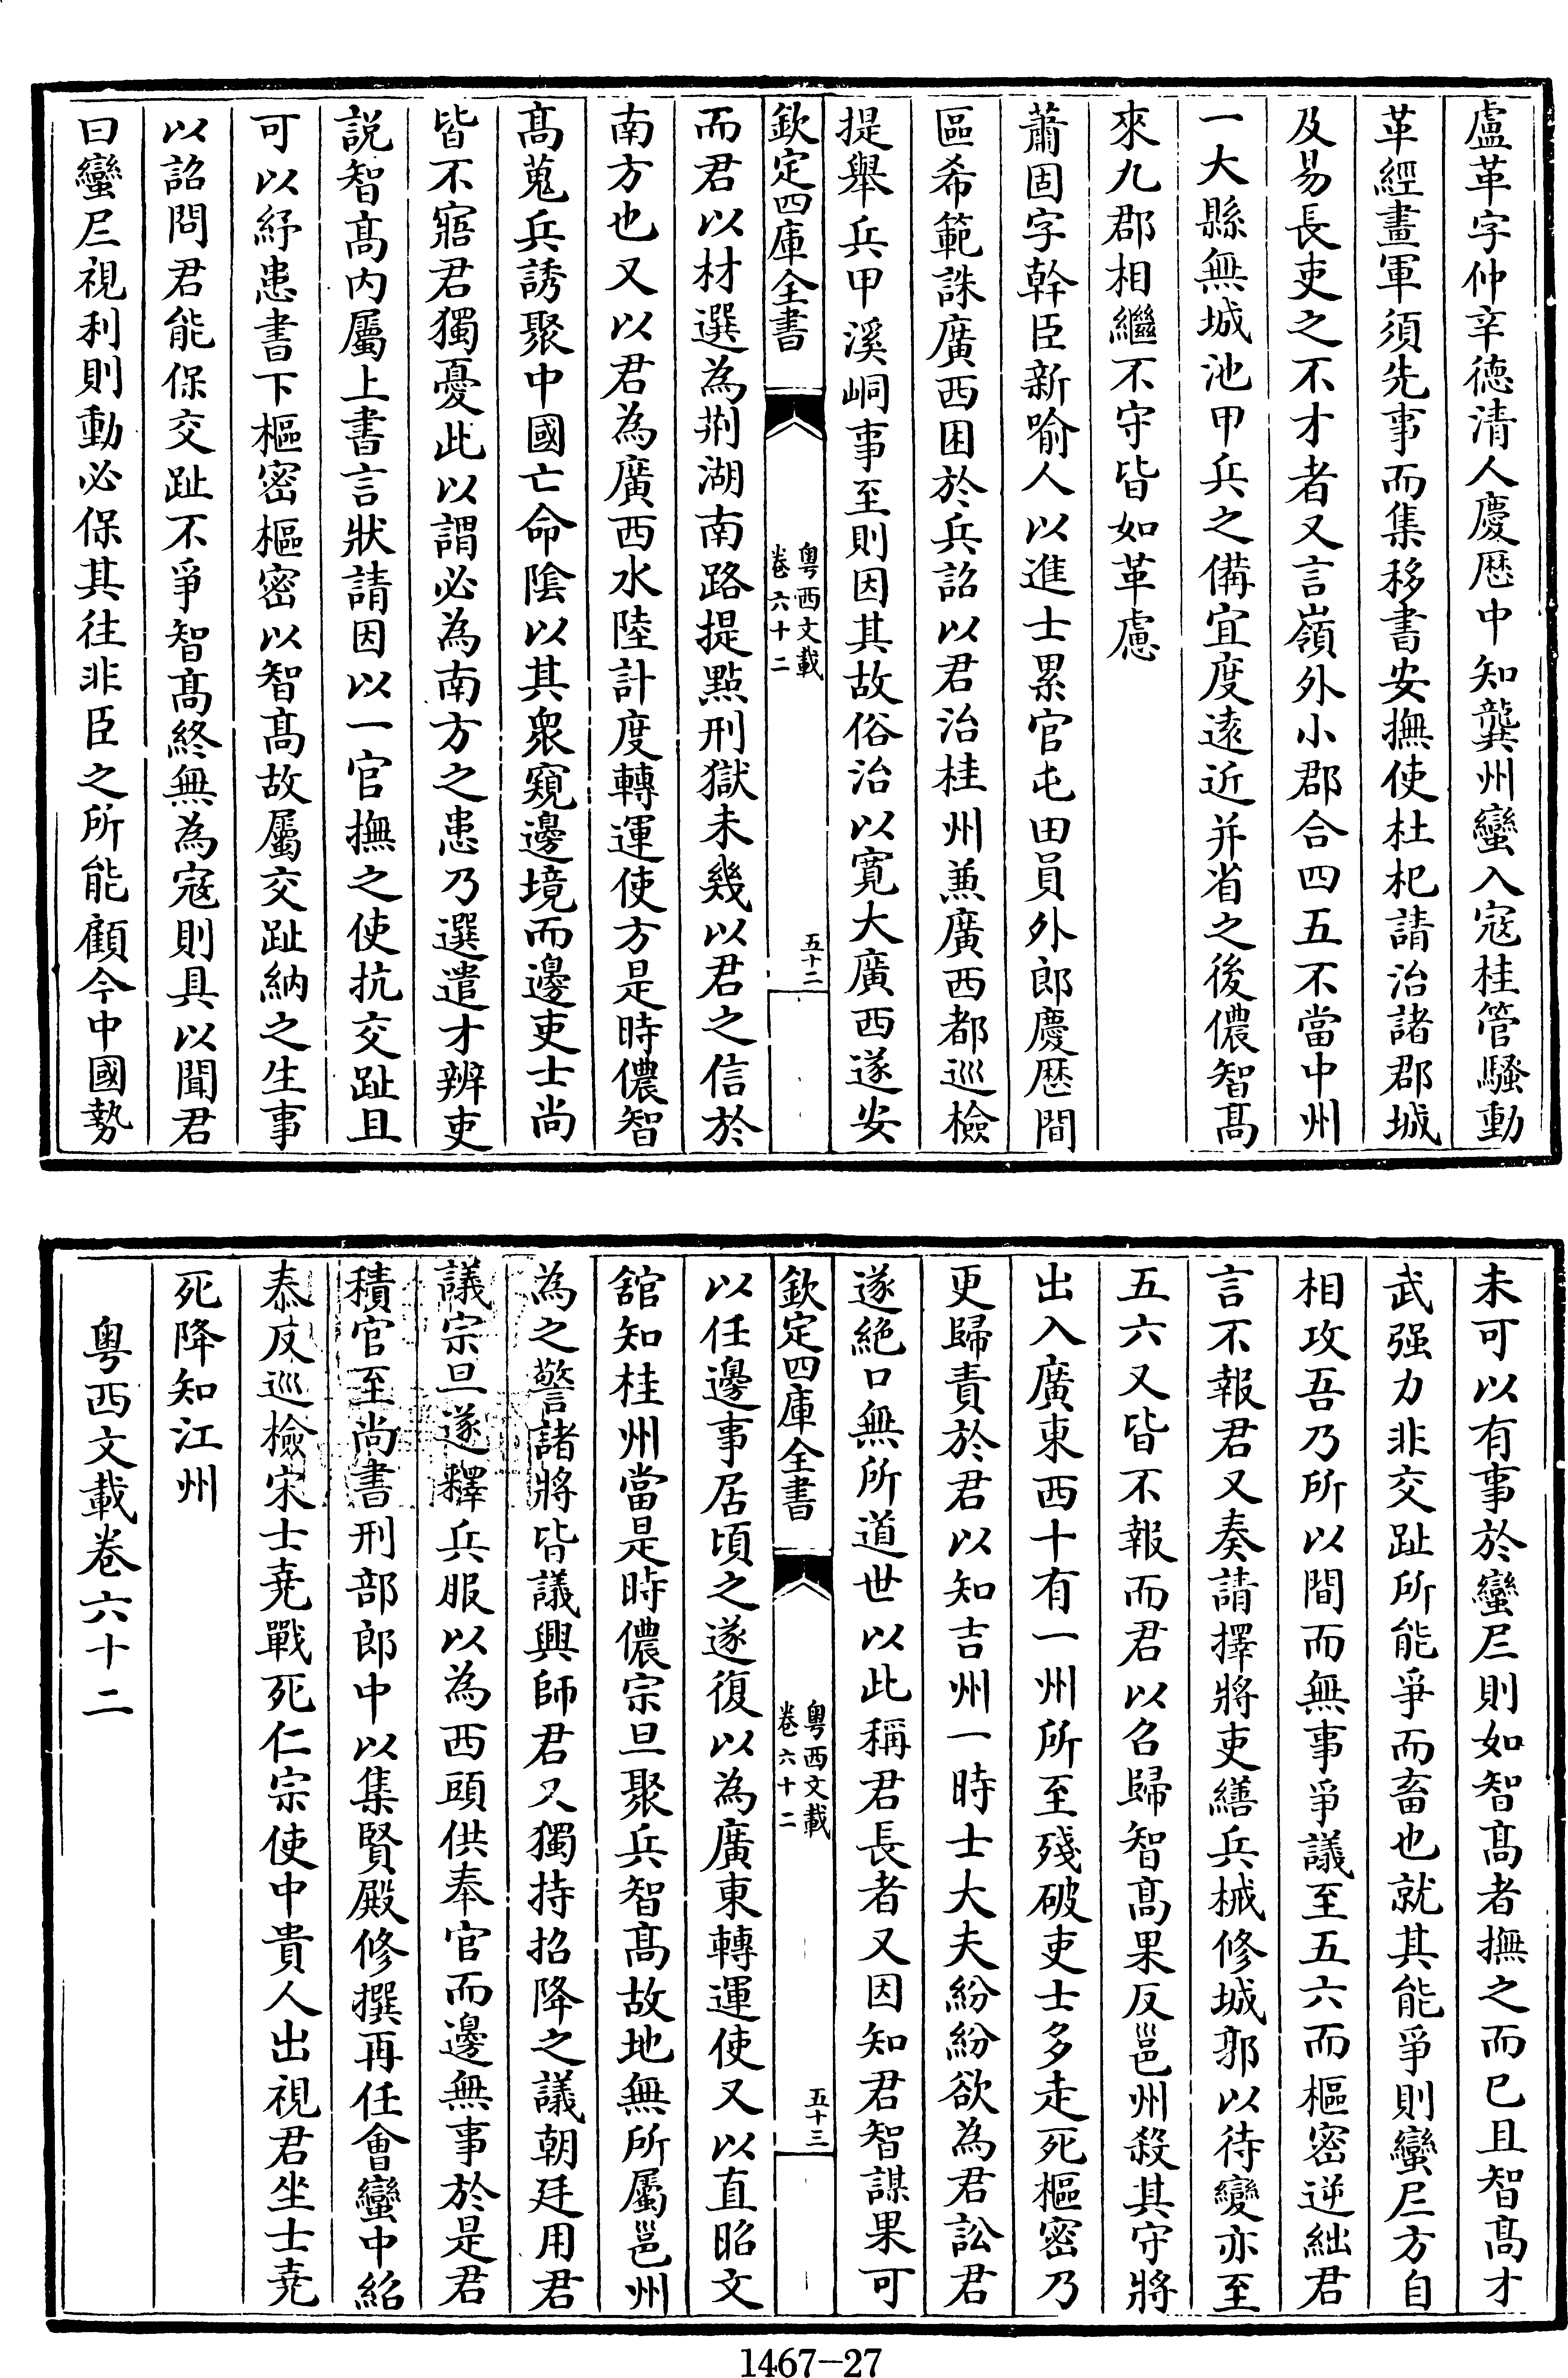 盧革字仲辛德清人慶厯中知龔州蠻入寇桂管騷動
革經畫軍須先事而集移書安撫使杜杞請治諸郡城
及易長吏之不才者又言嶺外小郡合四五不當中州
一大縣無城池甲兵之備宜度逺近并省之後儂智髙
來九郡相繼不守皆如革慮
蕭固字幹臣新喻人以進士累官屯田員外郎慶厯間
區希範誅廣西困於兵詔以君治桂州兼廣西都巡檢
提舉兵甲溪峒事至則因其故俗治以寛大廣西遂安
欽定四庫全書
粤西文載
卷六十二
五十二
而君以材選為荆湖南路提點刑獄未幾以君之信於
南方也又以君為廣西水陸計度轉運使方是時儂智
髙蒐兵誘聚中國亡命隂以其衆窺邊境而邊吏士尚
皆不寤君獨憂此以謂必為南方之患乃選遣才辨吏
説智髙内屬上書言狀請因以一官撫之使抗交趾且
可以紓患書下樞密樞密以智髙故屬交趾納之生事
以詔問君能保交趾不爭智髙終無為寇則具以聞君
曰蠻𡰥視利則動必保其往非臣之所能顧今中國勢
未可以有事於蠻𡰥則如智髙者撫之而已且智髙才
武强力非交趾所能爭而畜也就其能爭則蠻𡰥方自
相攻吾乃所以間而無事爭議至五六而樞密逆絀君
言不報君又奏請擇將吏繕兵械修城郭以待變亦至
五六又皆不報而君以召歸智髙果反邕州殺其守將
出入廣東西十有一州所至殘破吏士多走死樞密乃
更歸責於君以知吉州一時士大夫紛紛欲為君訟君
遂絶口無所道世以此稱君長者又因知君智謀果可
欽定四庫全書
粤西文載
卷六十二
五十三
以任邊事居頃之遂復以為廣東轉運使又以直昭文
舘知桂州當是時儂宗旦聚兵智髙故地無所屬邕州
為之警諸將皆議興師君又獨持招降之議朝廷用君
議宗旦遂釋兵服以為西頭供奉官而邊無事於是君
積官至尚書刑部郎中以集賢殿修撰再任會蠻中紹
泰反巡檢宋士堯戰死仁宗使中貴人出視君坐士堯
死降知江州
粤西文載卷六十二
1467-27